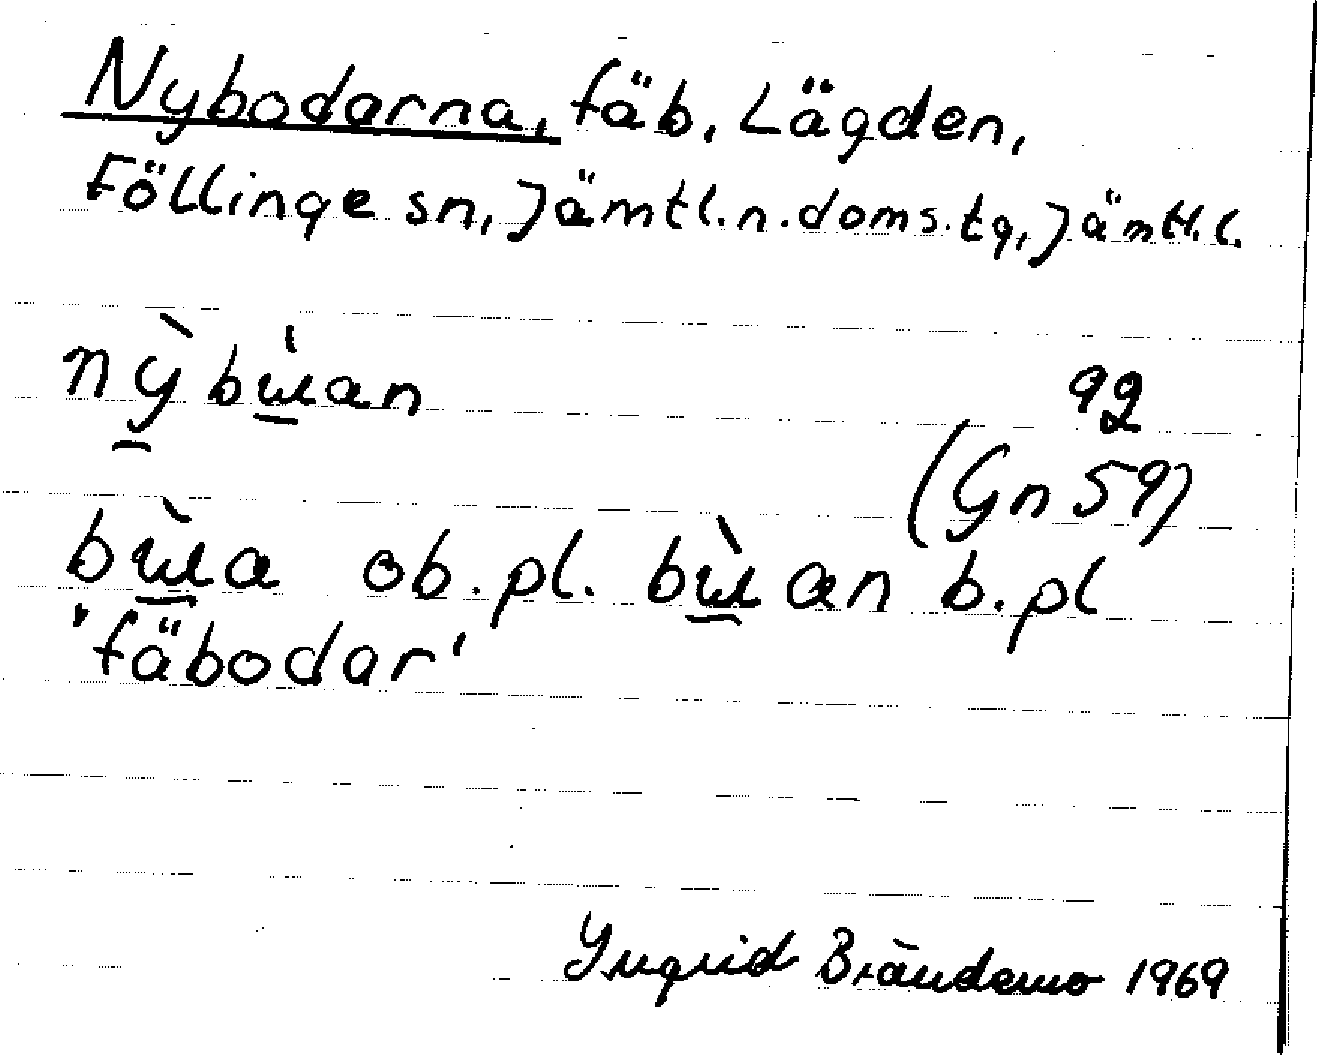 Nybodarna, fäb, Lägden,
Föllinge sn, Jämtl. n. doms. tg, Jämtl. l.
nỳ̠bɯ̠̍an
92
(Gn 59)
bɯ̠̀a ob. pl. bɯ̠̀an b. pl
'fäbodar'
Ingrid Brändemo 1969